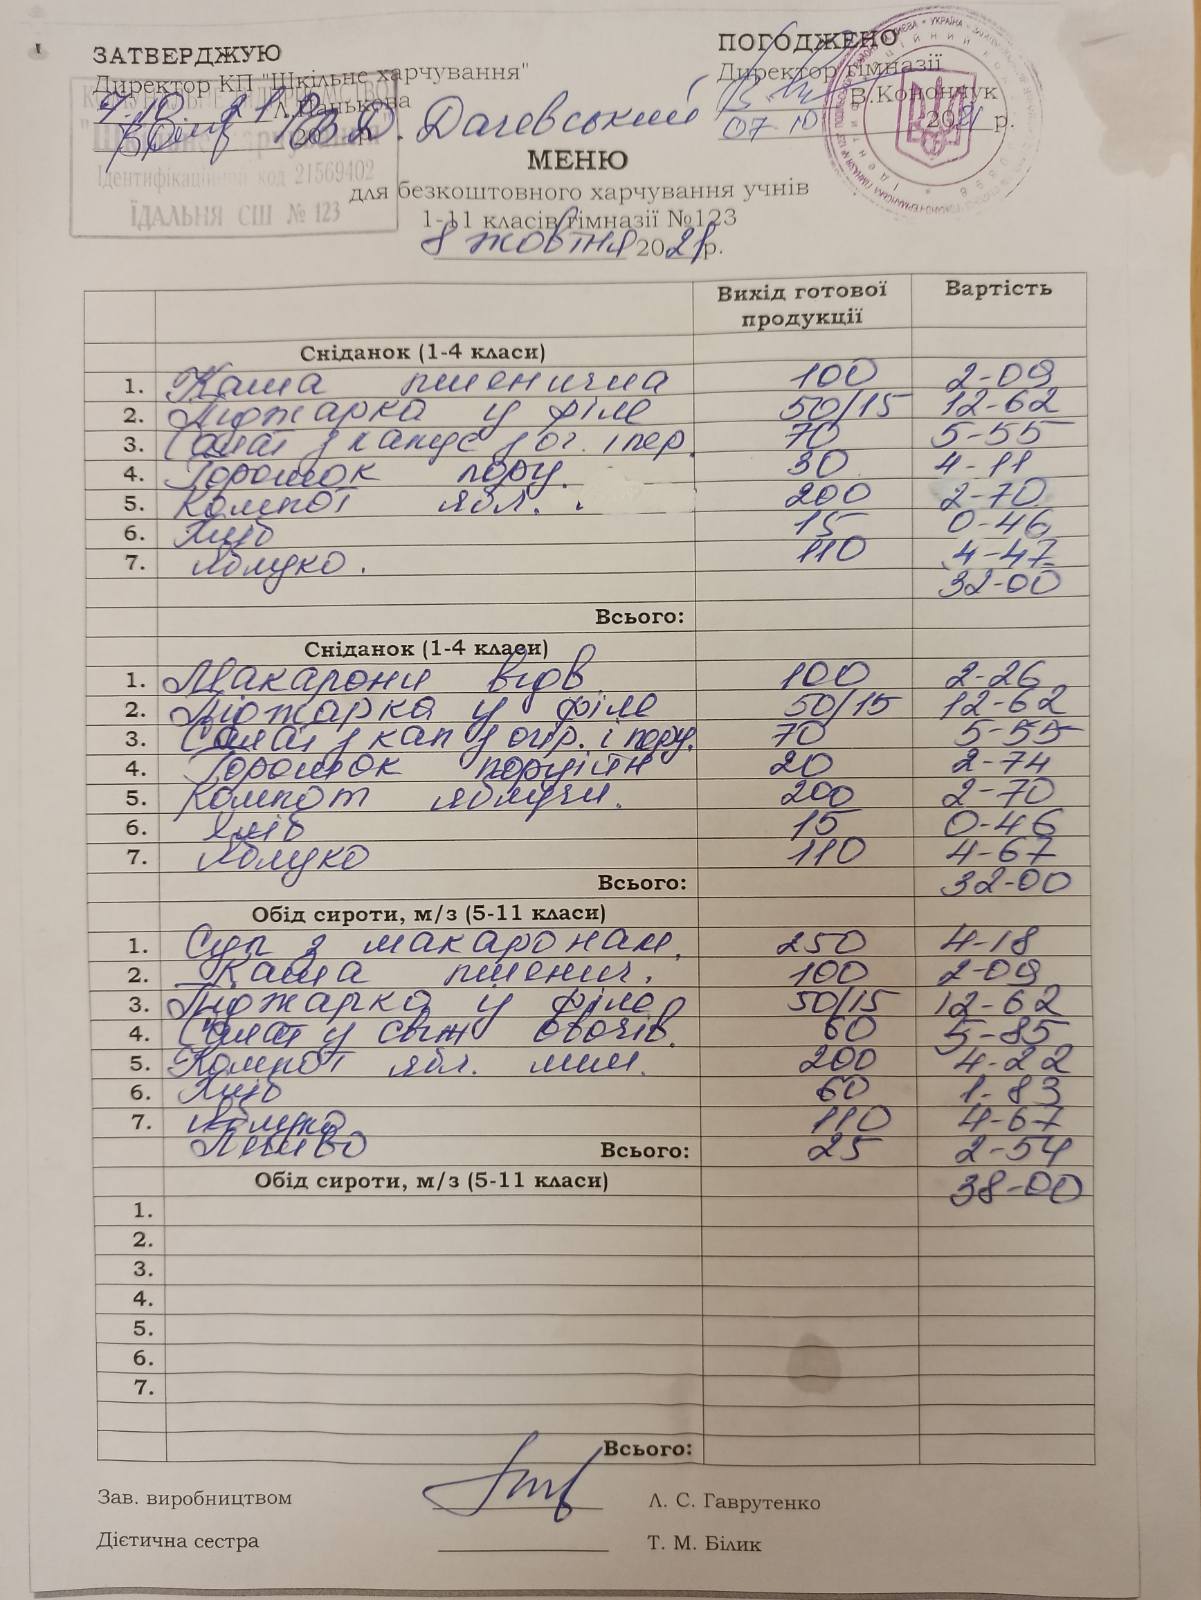 ЗАТВЕРДЖУЮ
Директор КП "Шкільне харчування"
Л.Панькова
В.Д. Дачевський
20 р.
ІДЕНТИФІКАЦІЙНИЙ код 21569402
ЇДАЛЬНЯ СШ № 123
ПОГОДЖЕНО
Директор гімназії
В.Конончук
07 10 2021 р.
МЕНЮ
для безкоштовного харчування учнів
1-11 класів гімназії №123
8 жовтня 2021р.
Вихід готової продукції Вартість
Сніданок (1-4 класи)
1. Каша пшенична 100 2-09
2. Піджарка у філе 50/15 12-62
3. Салат з капус з ог. і пер. 70 5-55
4. Горошок пору. 30 4-11
5. Компот ябл. 200 2-70
6. Хліб 15 0-46
7. Яблуко. 110 4-47
32-00
Всього:
Сніданок (1-4 класи)
1. Макарони відв 100 2-26
2. Піджарка у філе 50/15 12-62
3. Салат з кап з огір. і пору. 70 5-55
4. Горошок 20 2-74
5. Компот яблучн. 200 2-70
6. Хліб 15 0-46
7. Яблуко 110 4-67
Всього: 32-00
Обід сироти, м/з (5-11 класи)
1. Суп з макаронам. 250 4-18
2. Каша пшенич. 100 2-09
3. Піджарка у філе 50/15 12-62
4. Салат у свіж овочів. 60 5-85
5. Компот ябл. лим. 200 4-22
6. Хліб 60 1-83
7. Яблуко 110 4-67
Всього: 25 2-54
Обід сироти, м/з (5-11 класи) 38-00
1.
2.
3.
4.
5.
6.
7.
Всього:
Зав. виробництвом Л. С. Гаврутенко
Дієтична сестра Т. М. Білик